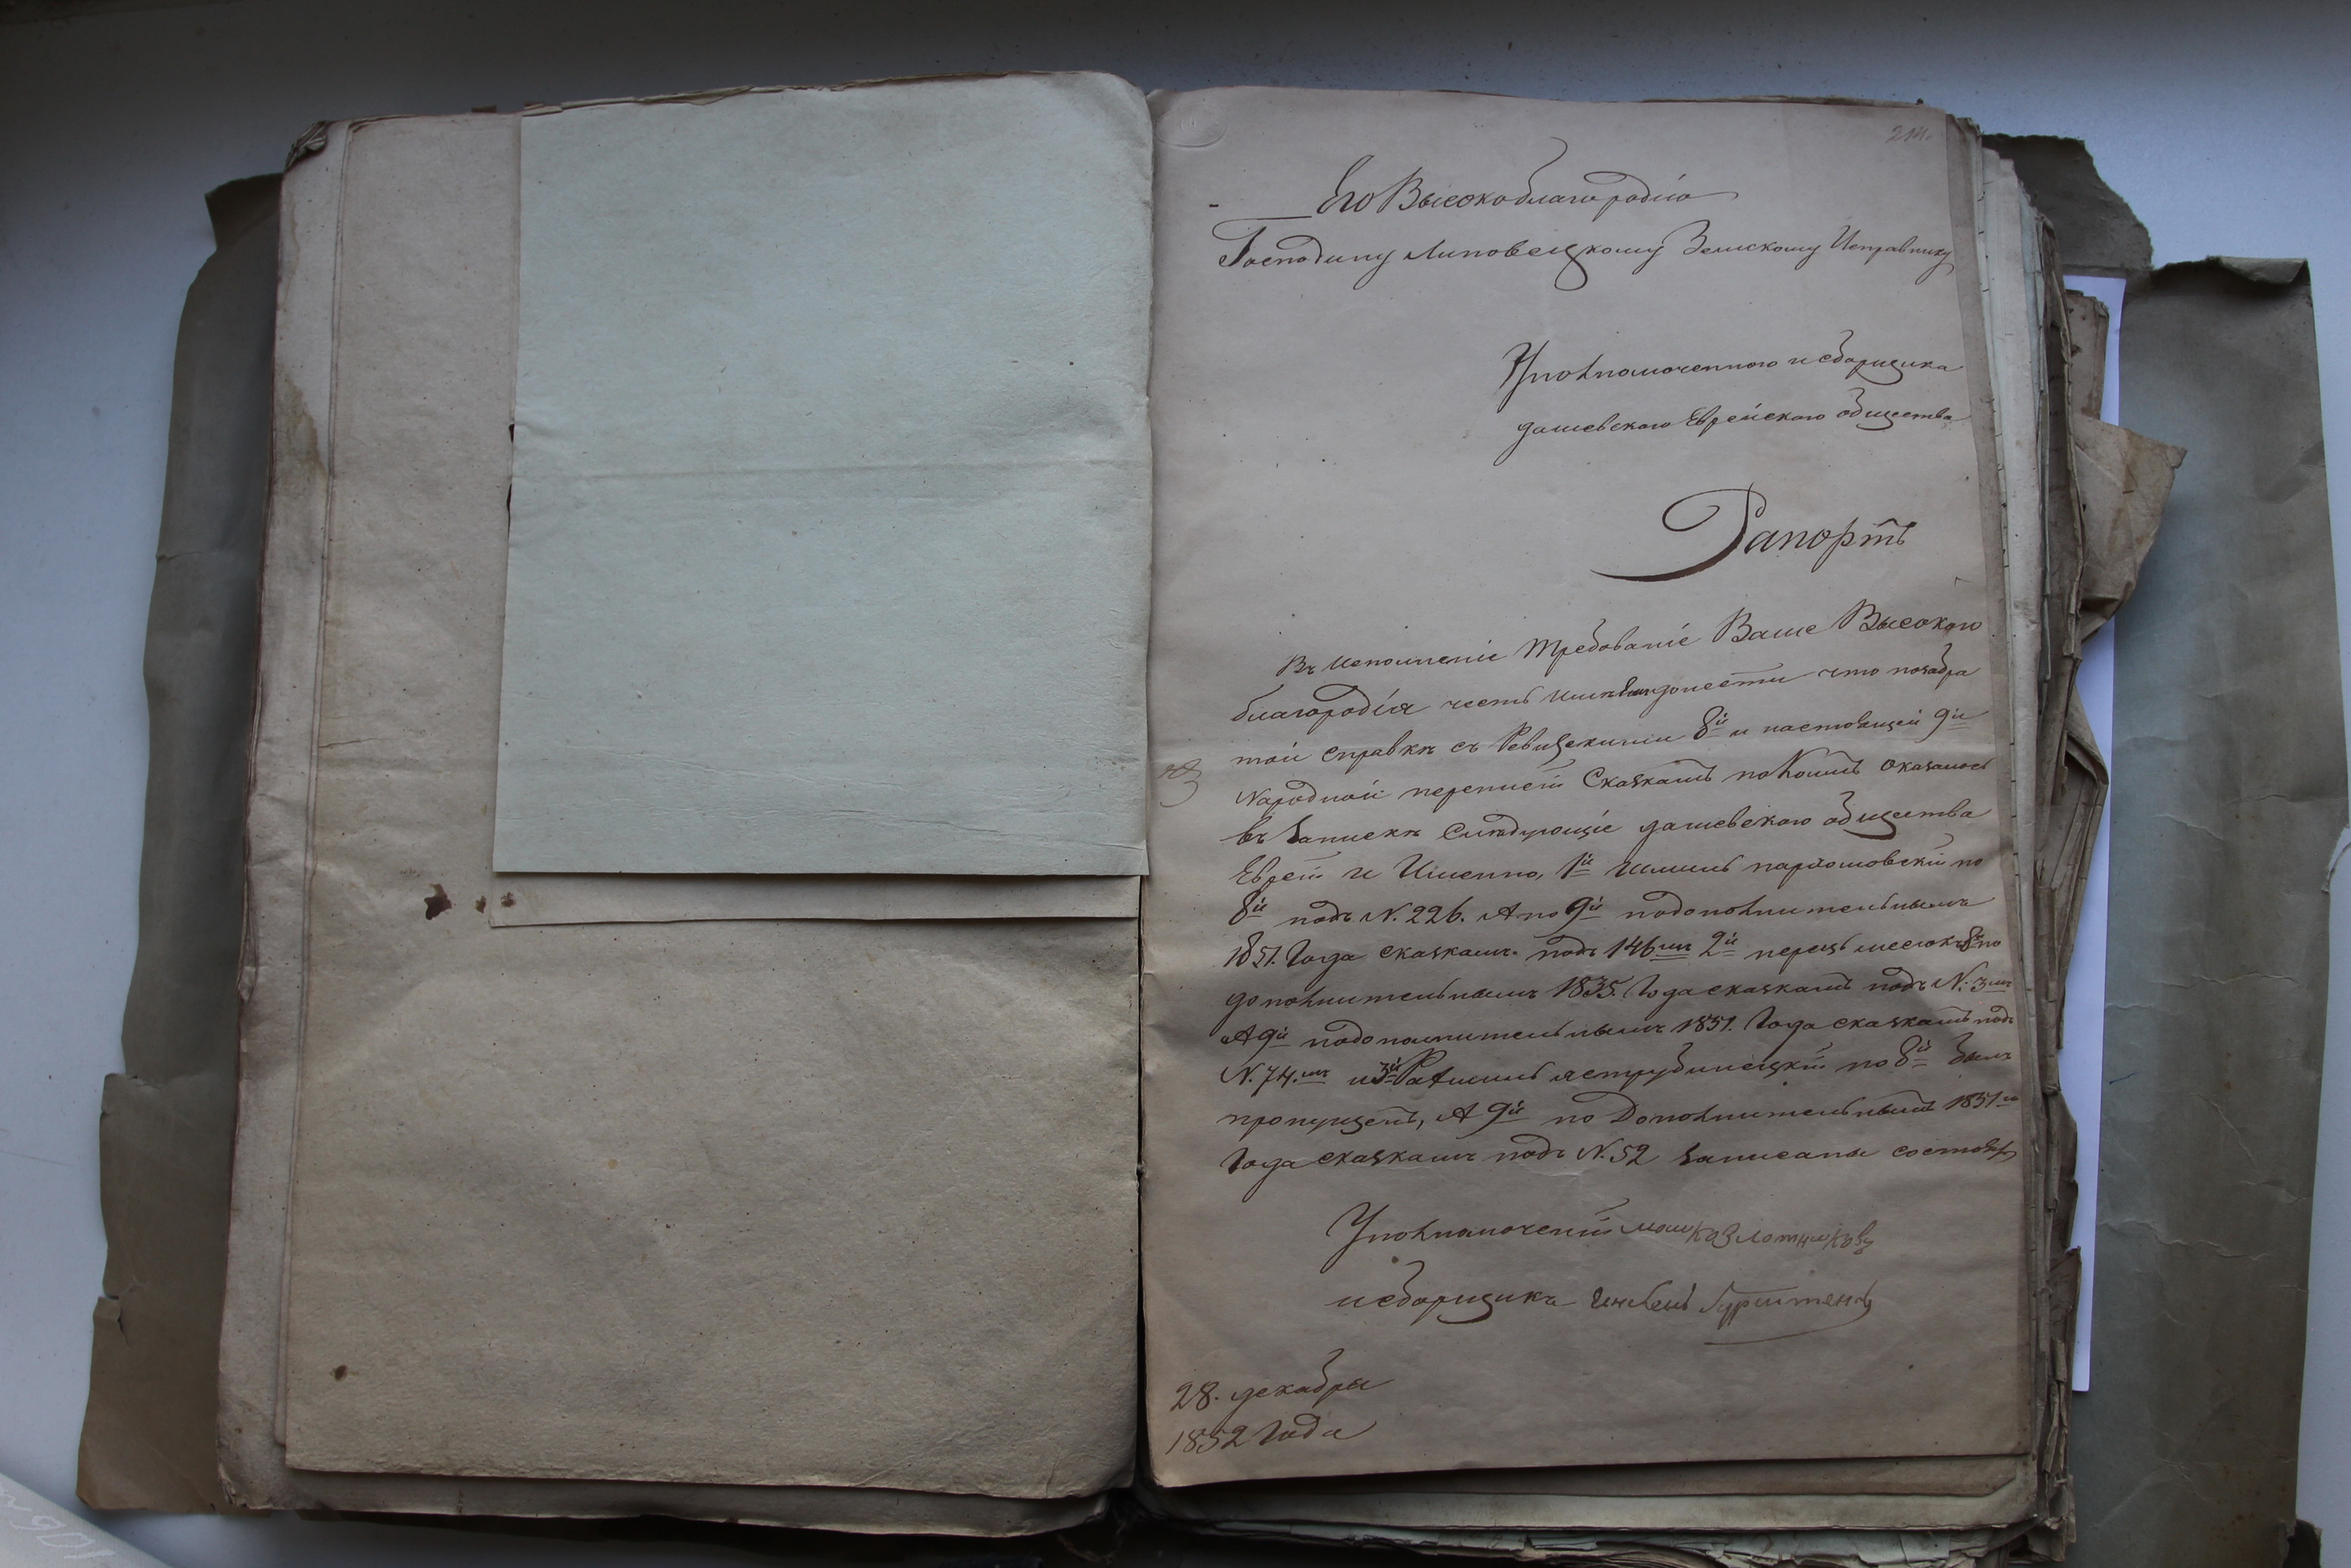 214.
Его Высокоблагородію
Господину Липовецкому Земскому Исправнику
Уполномоченного и сборщика
дашевского Еврейского общества
Рапортъ
Въ исполненіе требованіе Ваше Высоко
благородія честь имѣем донести что по забра
той справкѣ съ Ревизскими 8й и настоящей 9й
Народной переписи Сказкамъ по коимъ оказалось
въ запискѣ следующіе дашевского общества
Еврей и Именно, 1й пархомовскій по
8й подъ N. 226. А по 9й подополнительнымъ
1851. Года сказкамъ подъ 146мъ 2й перецъ по
дополнительнымъ 1835. Года сказкамъ подъ N. 3мъ
А 9й подополнительнымъ 1851. Года сказкамъ подъ
N. 74.мъ и 3й яструбинецкій по 8й былъ
пропущенъ, А 9й по Дополнительнымъ 1851го
Года сказкамъ подъ N. 52 записаны состоятъ
Уполномоченій мошко Злотниковъ
и сборщикъ
28. декабря
1852 Года